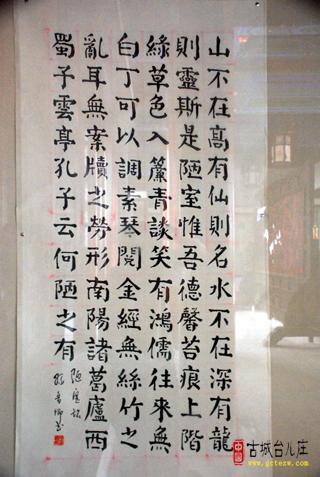 山不在高有仙則名水不在深有龍
則靈斯是陋室惟吾德馨苔痕上階
綠草色入簾青談笑有鴻儒往來無
白丁可以調素琴閱金經無絲竹之
亂耳無案牘之勞形南陽諸葛廬西
蜀子雲亭孔子云何陋之有
陋室銘
古城台儿庄
www.gctezw.com